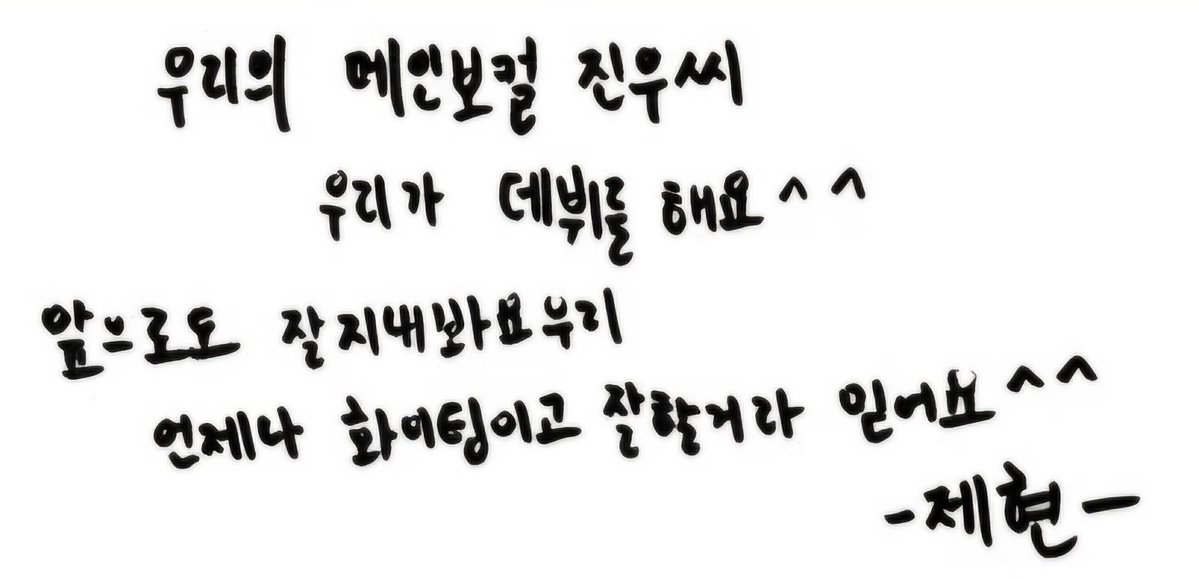 우리의 메인보컬 진우씨
우리가 데뷔를 해요^^
앞으로도 잘지내봐요우리
언제나 화이팅이고 잘할거라 믿어요^^
-제현-